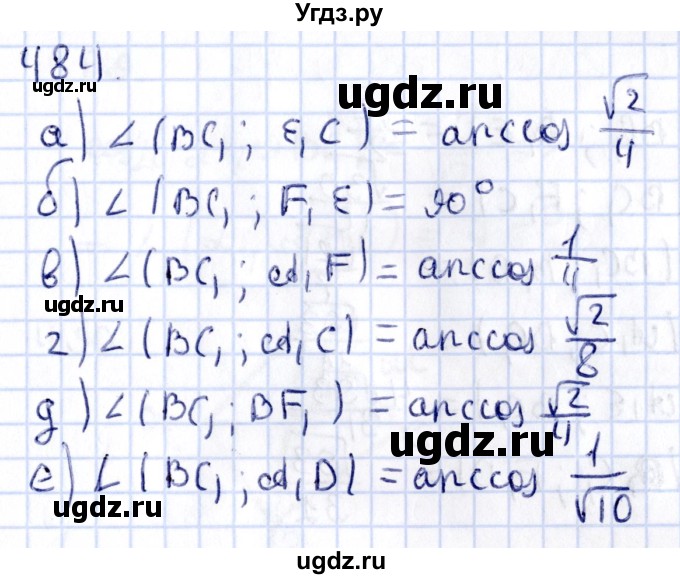 Угдз.ру
484.
ugdz.ru
ugdz.ru
а) ∠(BC₁; E₁C) = arccos √2/4
ugdz.ru
б) ∠(BC₁; F₁E) = 90°
в) ∠(BC₁; A₁F) = arccos 1/4
ugdz.ru
ugdz.ru
г) ∠(BC₁; A₁C) = arccos √2/8
ugdz.ru
д) ∠(BC₁; BF₁) = arccos √2/4
ugdz.ru
е) ∠(BC₁; A₁D) = arccos 1/√10
ugdz.ru
ugdz.ru
ugdz.ru